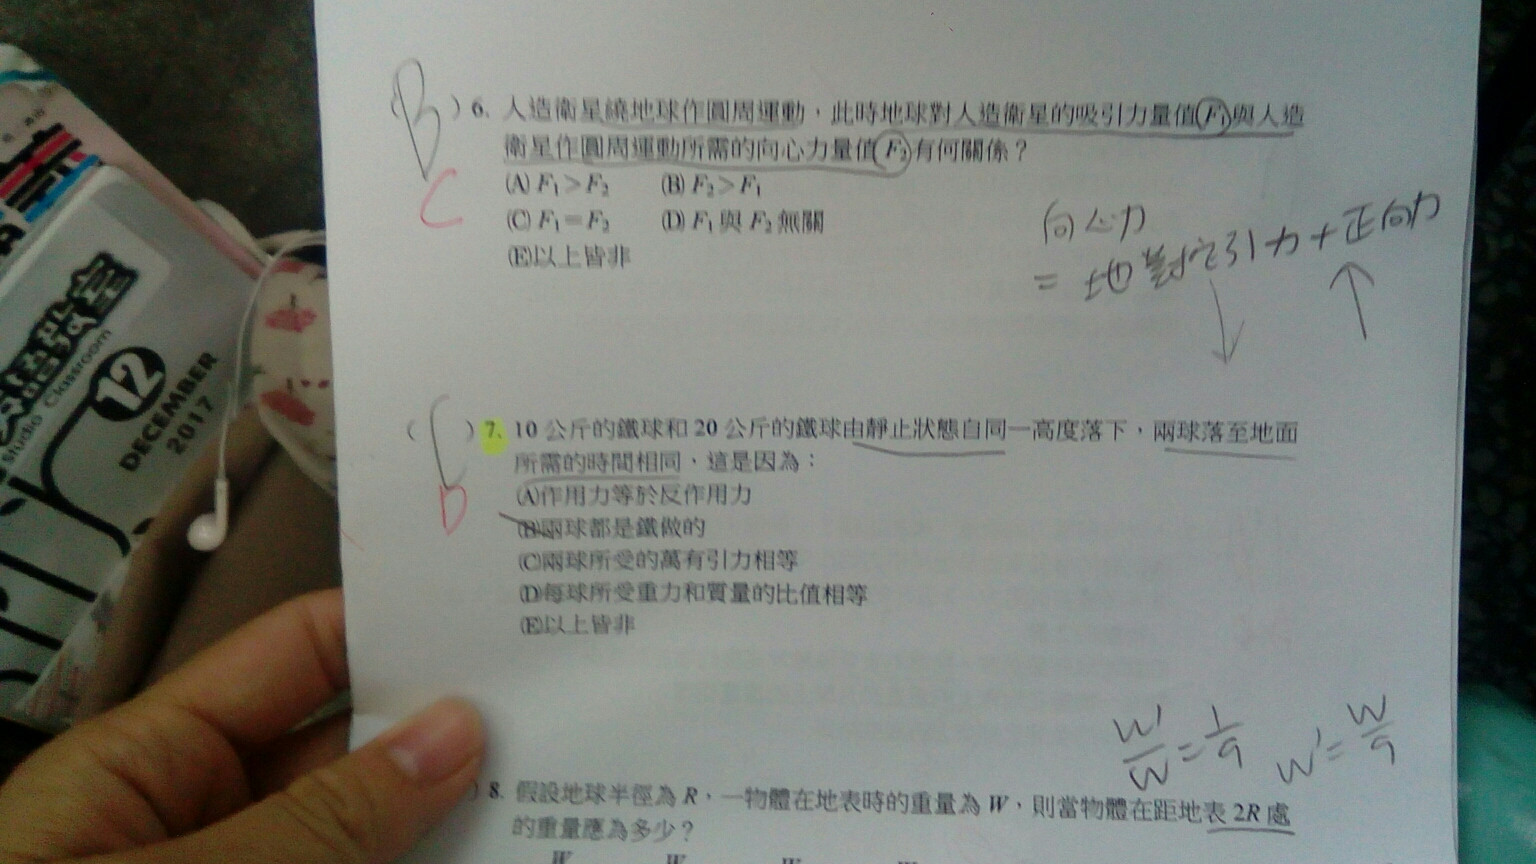 B
) 6. 人造衛星繞地球作圓周運動，此時地球對人造衛星的吸引力量值 F₁ 與人造
衛星作圓周運動所需的向心力量值 F₂ 有何關係？
C
(A) F₁＞F₂ (B) F₂＞F₁
(C) F₁＝F₂ (D) F₁ 與 F₂ 無關
(E)以上皆非
向心力
= 地對它引力+正向力
( C ) 7. 10 公斤的鐵球和 20 公斤的鐵球由靜止狀態自同一高度落下，兩球落至地面
所需的時間相同，這是因為：
D
(A)作用力等於反作用力
(B)兩球都是鐵做的
(C)兩球所受的萬有引力相等
(D)每球所受重力和質量的比值相等
(E)以上皆非
W'/W=1/9 W'=W/9
) 8. 假設地球半徑為 R，一物體在地表時的重量為 W，則當物體在距地表 2R 處
的重量應為多少？
Studio Classroom
12
DECEMBER
2017